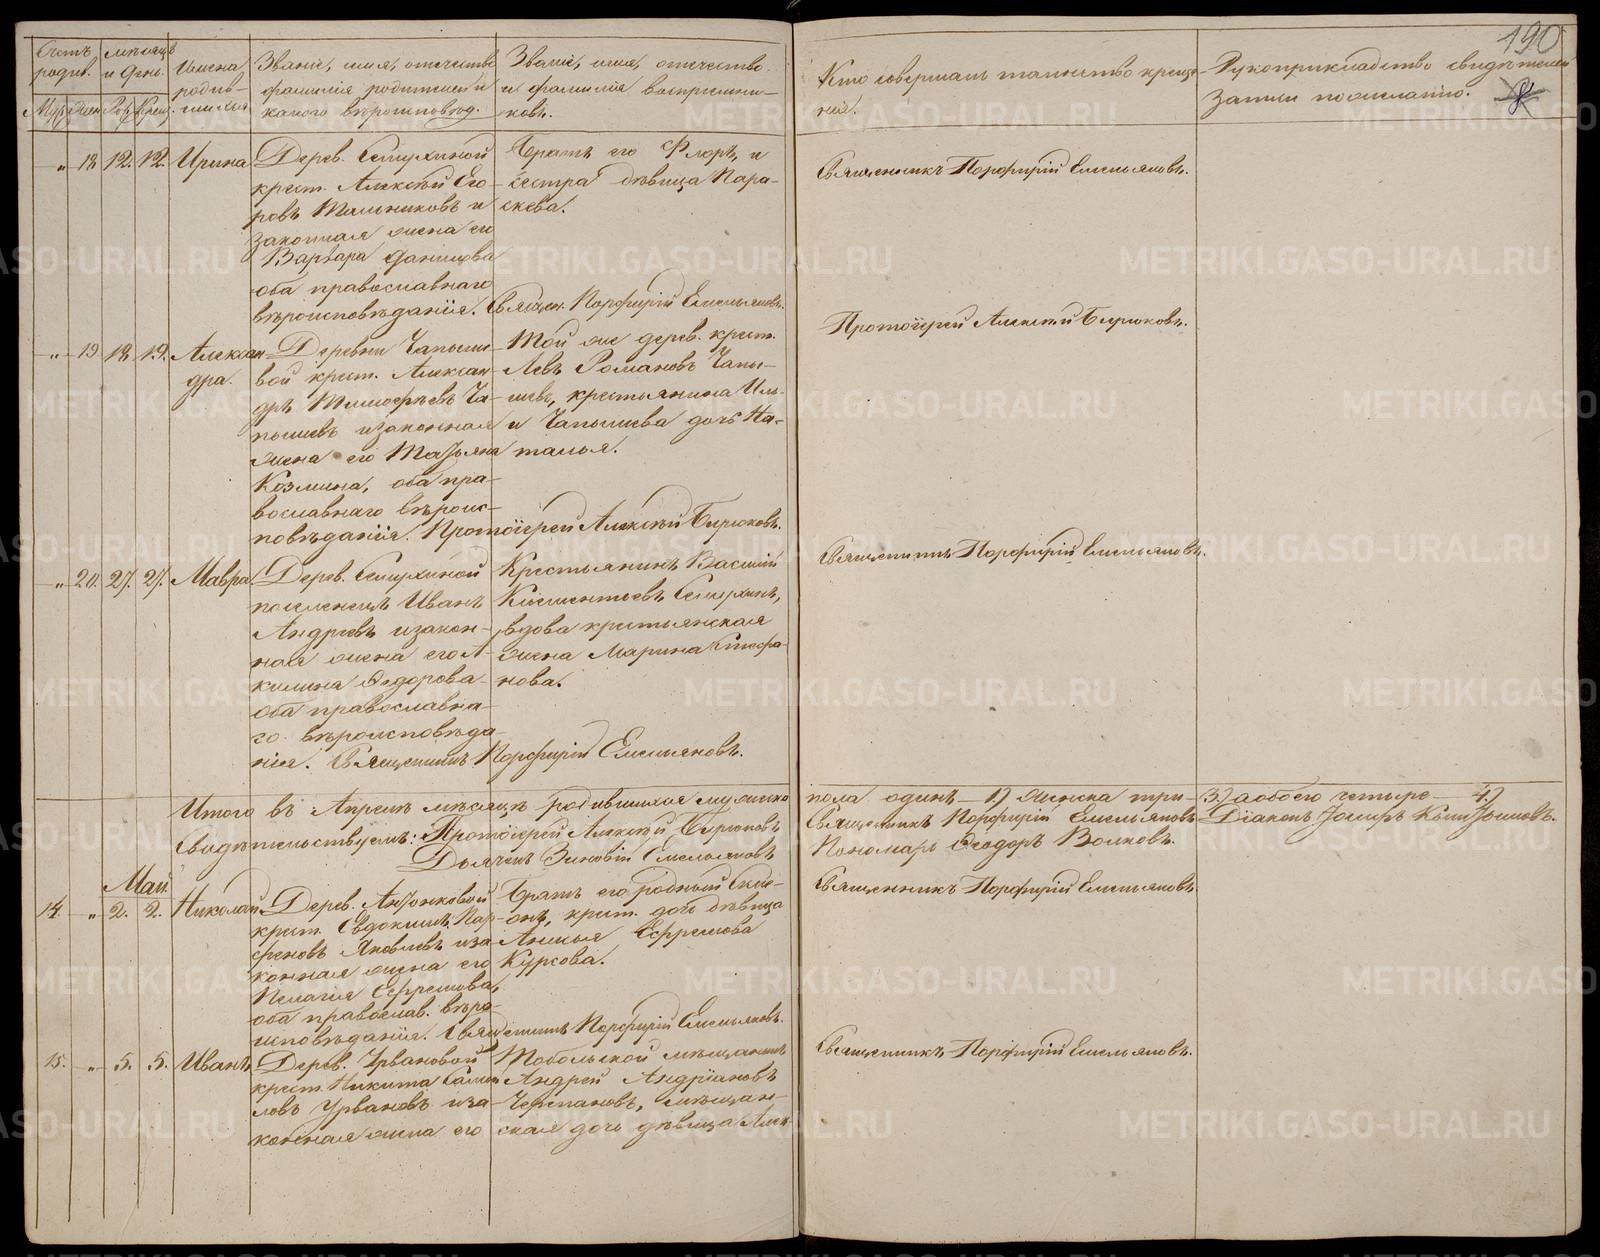 190
Счетъ родив. Мѣсяцъ и день.
Муж. Жен. Рож. Крещ.
Имена родив-
шихся
Званіе, имя, отчество
фамилія родителей и
какого вѣроисповѣд.
Званіе, имя, отчество
и фамилія воспріемни-
ковъ.
Кто совершалъ таинство креще-
нія.
Рукоприкладство свидѣтелей
записи по желанію.
„ 18 12. 12. Ирина
Дерев. Семухиной
крест. Алексѣй Его-
ровъ Мальниковъ и
законная жена его
Варвара
оба православнаго
вѣроисповѣданія. Священ. Порфирій Емельяновъ.
Братъ его Флоръ, и
сестра дѣвица Пара-
скева.
Священникъ Порфирій Емельяновъ.
„ 19 18. 19. Алексан-
дра.
Деревни Чапыше-
вой крест. Алексан-
дръ Тимофѣевъ Ча-
пышевъ и законная
жена его Татьяна
Козмина, оба пра-
вославнаго вѣроис-
повѣданія. Протоіерей Алексѣй Бирюковъ.
Той же дерев. крест.
Левъ Романовъ Чапы-
шевъ, крестьянина Иль-
и Чапышева дочь На-
талья.
Протоіерей Алексѣй Бирюковъ.
„ 20. 27. 27. Мавра.
Дерев. Семухиной
поселенецъ Иванъ
Андреевъ и закон-
ная жена его А-
килина Ѳедорова
оба православна-
го вѣроисповѣда-
нія. Священникъ Порфирій Емельяновъ.
Крестьянинъ Василій
Климентьевъ Семухинъ,
вдова крестьянская
жена Марина Стефа-
нова.
Священникъ Порфирій Емельяновъ.
Итого въ Апрелѣ мѣсяцѣ родившихся мужска
пола одинъ — 1) женска три — 3) а обоего четыре — 4)
Свидѣтельствуемъ: Протоіерей Алексѣй Бирюковъ
Священникъ Порфирій Емельяновъ Діаконъ
Дьячекъ Зиновій Емельяновъ
Пономарь Ѳеодоръ Волковъ.
Май.
14. „ 2. 2. Николай
Дерев. Антонковой
крест. Евдокимъ Пар-
феновъ Яковлевъ и за-
конная жена его
Пелагія Ефремова,
оба православ. вѣро-
исповѣданія. Священникъ Порфирій Емельяновъ.
Братъ его родный Симе-
онъ, крест. дочь дѣвица
Анисья Ефремова
Курсова.
Священникъ Порфирій Емельяновъ.
15. „ 5. 5. Иванъ.
Дерев. Урвановой
крест. Никита Самой-
ловъ Урвановъ и за-
конная жена его
Тобольской мѣщанинъ
Андрей Андріановъ
Черепановъ, мѣщан-
ская дочь дѣвица Алек-
Священникъ Порфирій Емельяновъ.
METRIKI.GASO-URAL.RU